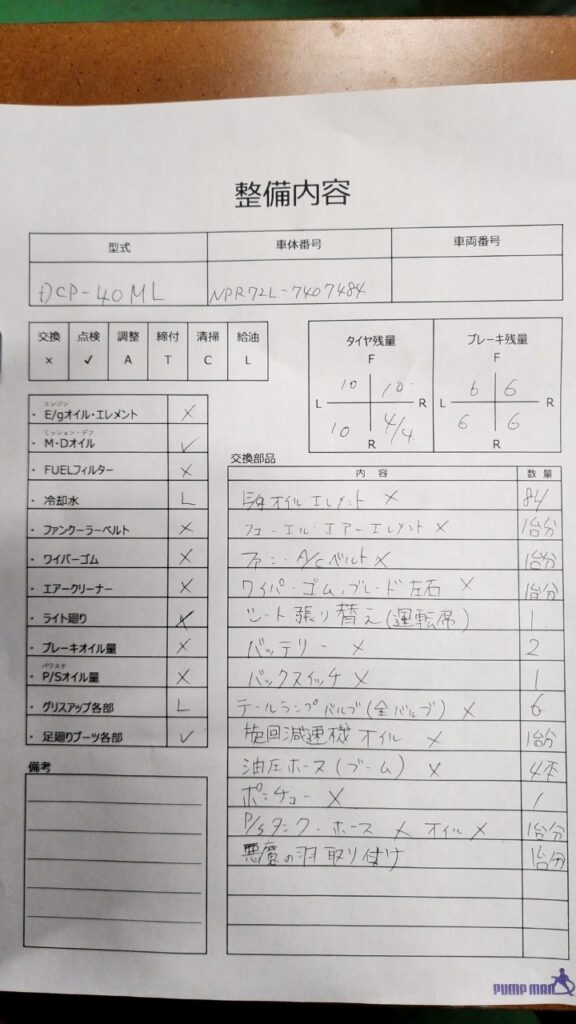 整備内容
型式 車体番号 車両番号
DCP-40ML NPR72L-7407484
交換 点検 調整 締付 清掃 給油
× ✓ A T C L
タイヤ残量 ブレーキ残量
F F
10 10 6 6
L R L R
10 4/4 6 6
R R
エンジン
・ E/gオイル・エレメント ×
ミッション・デフ
・ M・Dオイル ✓
・ FUELフィルター ×
・ 冷却水 L
・ ファンクーラーベルト ×
・ ワイパーゴム ×
・ エアークリーナー ×
・ ライト廻り
・ ブレーキオイル量 ×
パワステ
・ P/Sオイル量 ×
・ グリスアップ各部 L
・ 足廻りブーツ各部 ✓
備考
交換部品
内 容 数 量
オイル・エレメント ×
フューエル・エアーエレメント × 1台分
ファン・A/Cベルト × 1台分
ワイパーゴム、ブレード左右 × 1台分
シート張り替え(運転席) 1
バッテリー × 2
バックスイッチ × 1
テールランプバルブ(全バルブ) × 6
旋回減速機オイル × 1台分
油圧ホース(ブーム) × 4本
ポンチョー × 1
P/Sタンク・ホース × オイル × 1台分
悪魔の羽取り付け 1台分
PUMP MAN